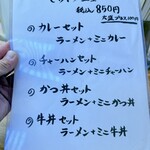 税込850円
大盛プラス100円
カレーセット
ラーメン+ミニカレー
チャーハンセット
ラーメン+ミニチャーハン
かつ丼セット
ラーメン+ミニかつ丼
牛丼セット
ラーメン+ミニ牛丼